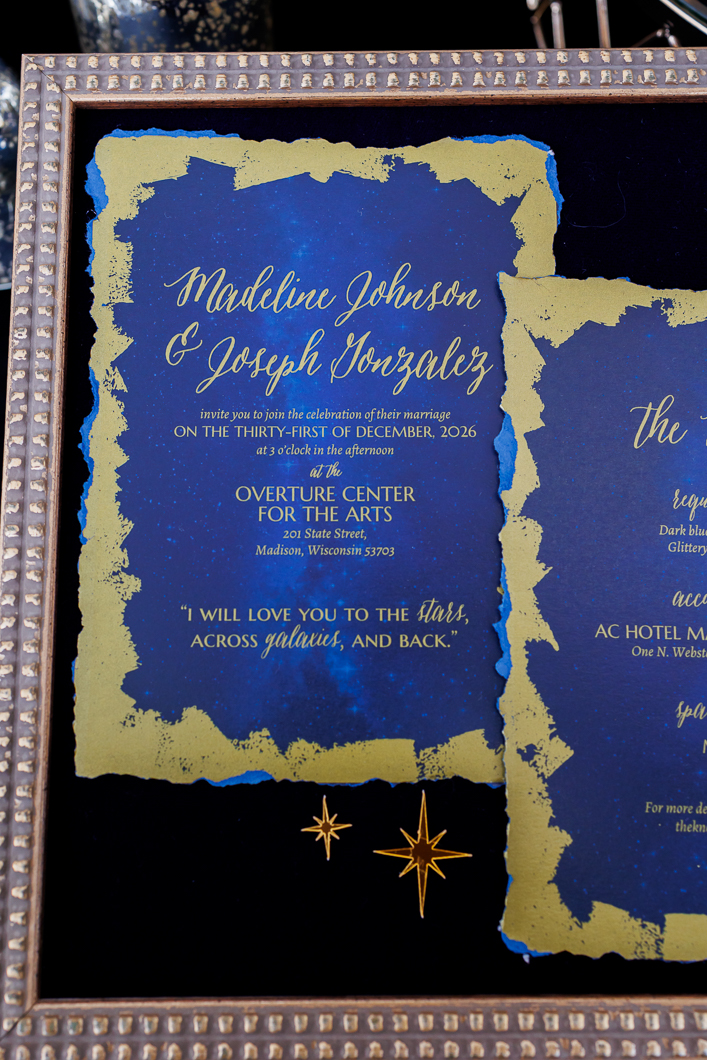 Madeline Johnson
& Joseph Gonzalez
invite you to join the celebration of their marriage
ON THE THIRTY-FIRST OF DECEMBER, 2026
at 3 o'clock in the afternoon
at the
OVERTURE CENTER
FOR THE ARTS
201 State Street,
Madison, Wisconsin 53703
“I WILL LOVE YOU TO THE stars,
ACROSS galaxies, AND BACK.”
the
Dark blue
Glittery
AC HOTEL
One N.
For more